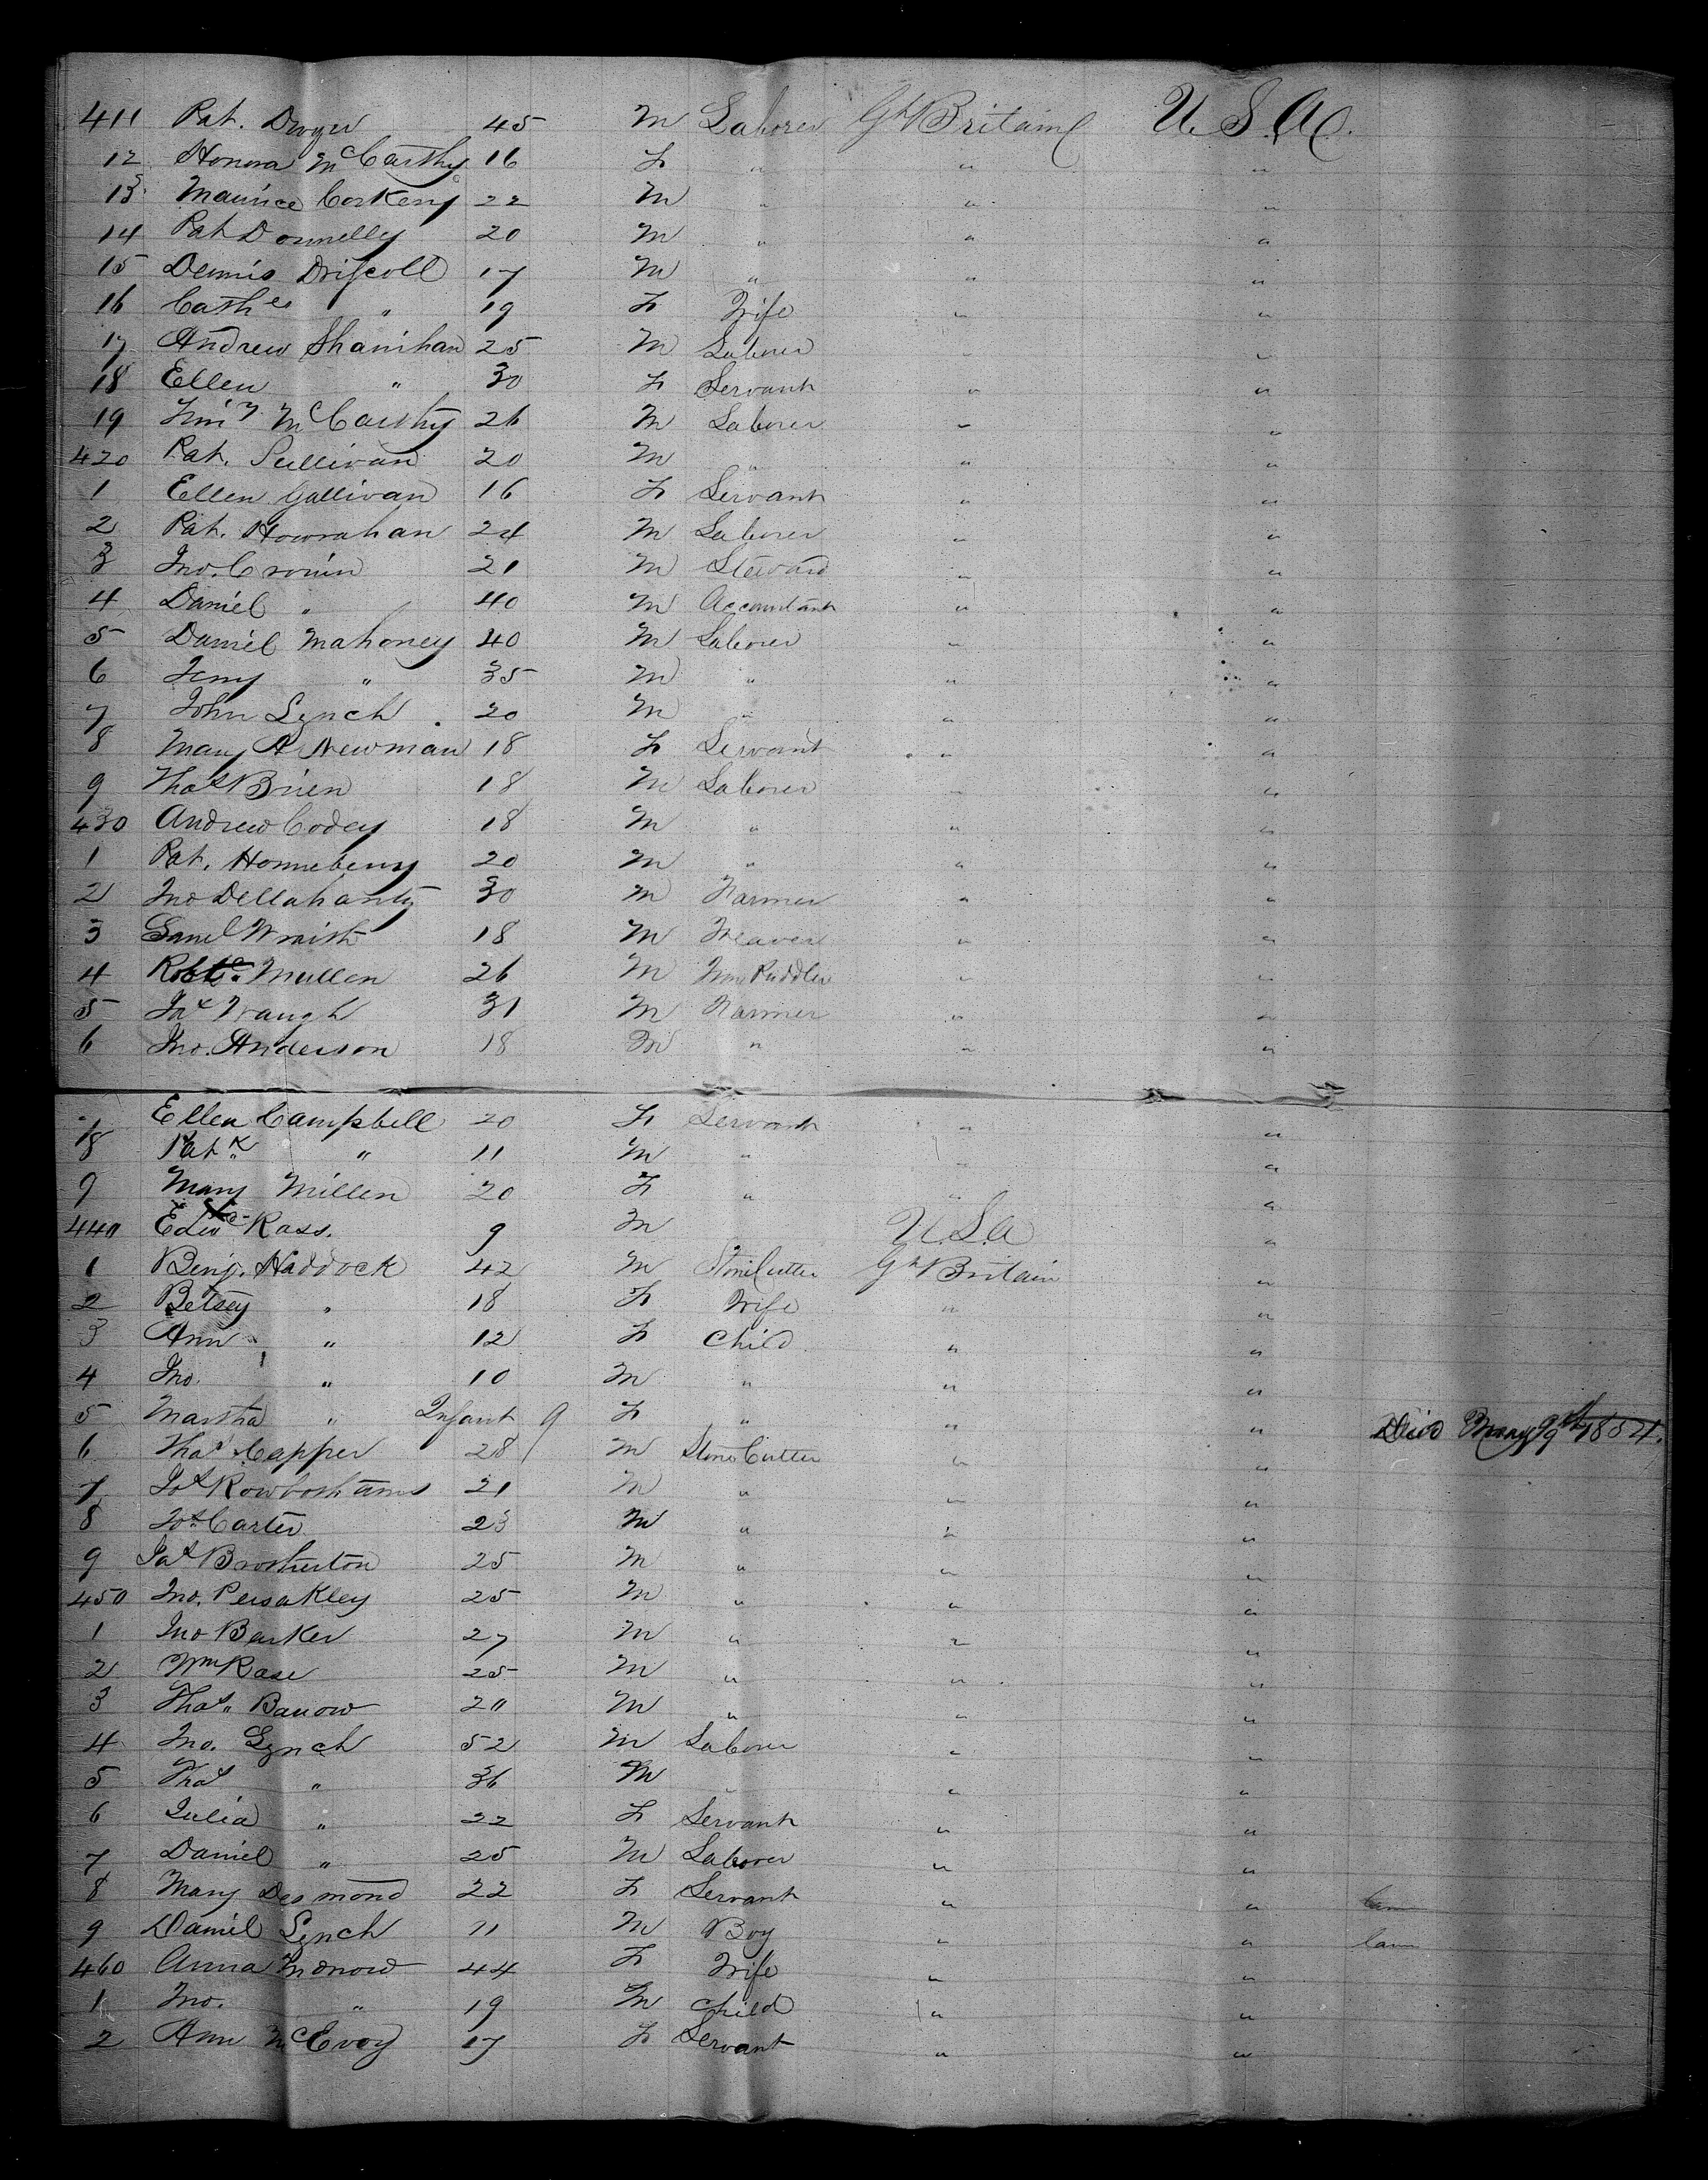 411 Pat. Dwyer 45 M Laborer Gt Britain U.S.A.
12 Honora McCarthy 16 F " " "
13 Maurice Corkery 22 M " " "
14 Pat Donnelly 20 M " " "
15 Dennis Driscoll 17 M " " "
16 Cathe " 19 F Wife " "
17 Andrew Shanihan 25 M Laborer " "
18 Ellen " 30 F Servant " "
19 Timy McCarthy 26 M Laborer " "
420 Pat. Sullivan 20 M " " "
1 Ellen Gallivan 16 F Servant " "
2 Pat. Hownahan 24 M Laborer " "
3 Jno. Cronin 21 M Steward " "
4 Daniel " 40 M Accountant " "
5 Daniel Mahoney 40 M Laborer " "
6 Jerry " 35 M " " "
7 John Lynch 20 M " " "
8 Mary A Newman 18 F Servant " "
9 Thos Brien 18 M Laborer " "
430 Andrew Codey 18 M " " "
1 Pat. Henneberry 20 M " " "
2 Jno Dellahanty 30 M Farmer " "
3 Saml Wraith 18 M Weaver " "
4 Robt. Mullen 26 M Iron Puddler " "
5 Jas Waugh 31 M Farmer " "
6 Jno. Anderson 18 M " " "
7 Ellen Campbell 20 F Servant " "
8 Patk " 11 M " " "
9 Mary Millen 20 F " " "
440 Edwd Ross. 9 M U.S.a "
1 Benj. Haddock 42 M Stone Cutter Gt Britain "
2 Betsey " 18 F Wife " "
3 Ann " 12 F Child " "
4 Jno. " 10 M " " "
5 Martha " Infant 9 F " " " Died May 9th 1854.
6 Thos Capper 28 M Stone Cutter " "
7 Jos Rowbothams 21 M " " "
8 Jos. Carter 23 M " " "
9 Jas Brotherton 25 M " " "
450 Jno. 25 M " " "
1 Jno Barker 27 M " " "
2 Wm Rose 25 M " " "
3 Thos. Barrow 20 M " " "
4 Jno. Lynch 52 M Laborer " "
5 Thos " 36 M " " "
6 Julia " 22 F Servant " "
7 Daniel " 25 M Laborer " "
8 Mary Desmond 22 F Servant " "
9 Daniel Lynch 11 M Boy " "
460 Anna 44 F Wife " "
1 Jno. " 19 M Child " "
2 Ann McEvoy 17 F Servant " "